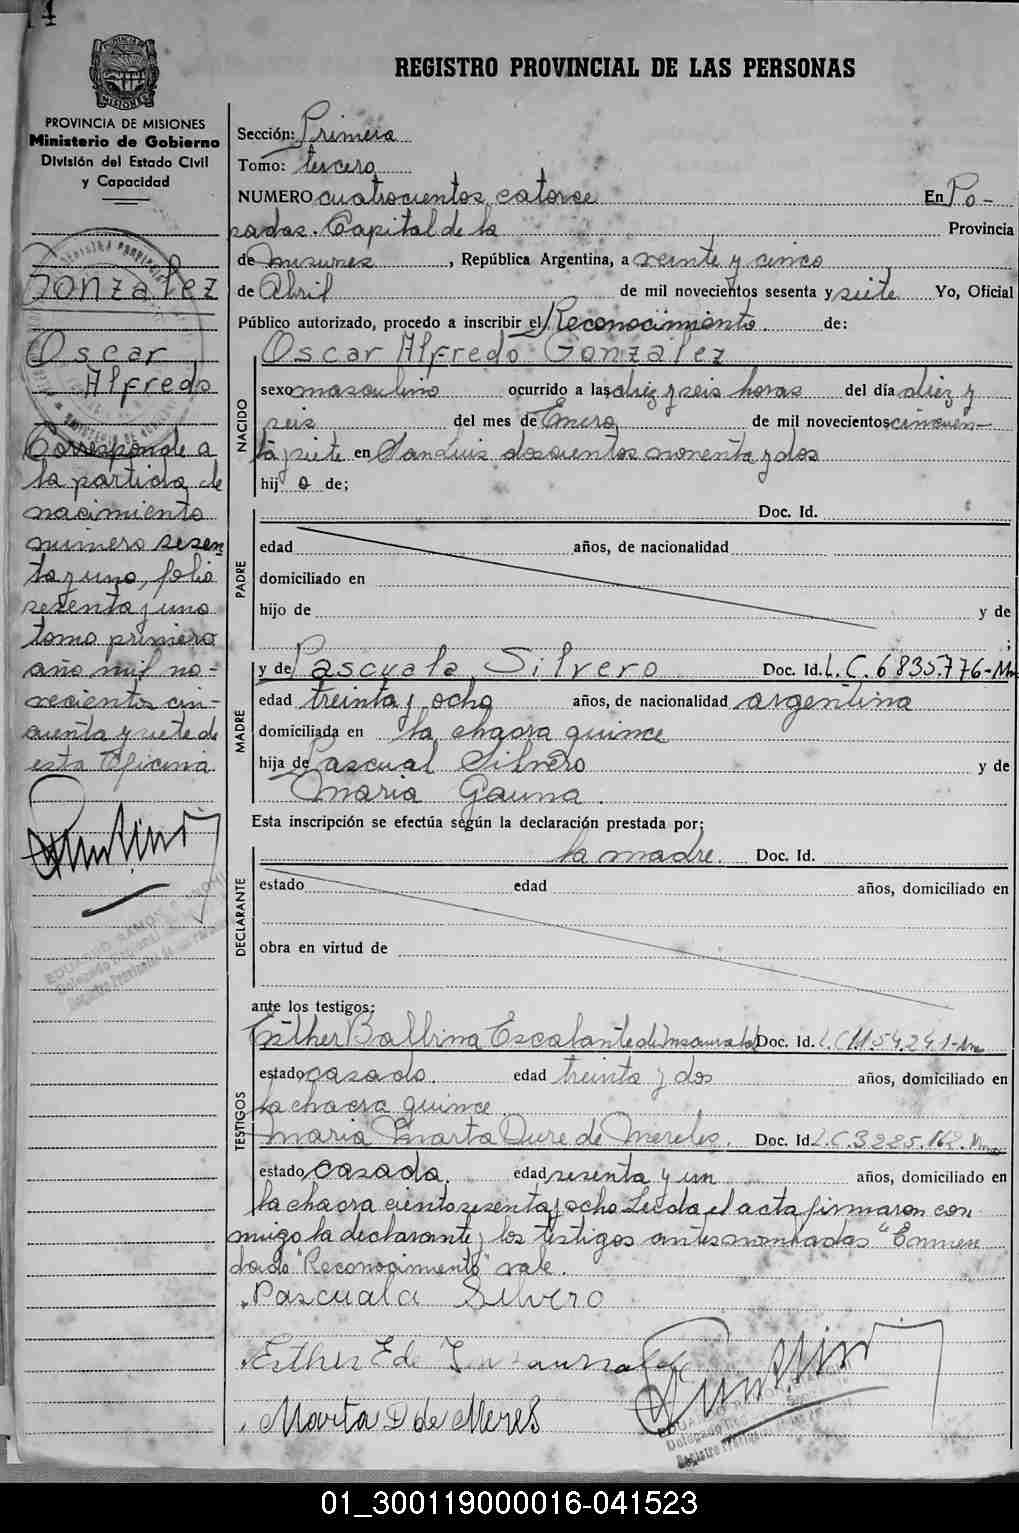 REGISTRO PROVINCIAL DE LAS PERSONAS
PROVINCIA DE MISIONES
Ministerio de Gobierno
División del Estado Civil
y Capacidad
Gonzalez
Oscar
Alfredo
Corresponde a
la partida de
nacimiento
numero sesen
ta y uno, folio
sesenta y uno
tomo primero
año mil no-
vecientos cin-
cuenta y siete de
esta Oficina
Sección: Primera
Tomo: tercero
NUMERO cuatrocientos catorce En Po-
sadas. Capital de la Provincia
de Misiones, República Argentina, a veinte y cinco
de Abril de mil novecientos sesenta y siete Yo, Oficial
Público autorizado, procedo a inscribir el Reconocimiento de:
Oscar Alfredo Gonzalez
NACIDO
sexo masculino ocurrido a las diez y seis horas del día diez y
seis del mes de Enero de mil novecientos cincuen-
ta y siete en San Luis doscientos noventa y dos
hijo de;
PADRE
Doc. Id.
edad años, de nacionalidad
domiciliado en
hijo de y de
;
MADRE
y de Pascuala Silvero Doc. Id. L.C. 6835.776-
edad treinta y ocho años, de nacionalidad argentina
domiciliada en la chacra quince
hija de Pascual Silvero y de
Maria Gauna.
Esta inscripción se efectúa según la declaración prestada por;
DECLARANTE
la madre. Doc. Id.
estado edad años, domiciliado en
obra en virtud de
ante los testigos:
TESTIGOS
Esther Balbina Escalante de Insaurralde Doc. Id. L.C.
estado casada. edad treinta y dos años, domiciliado en
la chacra quince
Maria Marta Dure de Mereles. Doc. Id. L.C. 3225.162.
estado casada. edad sesenta y un años, domiciliado en
la chacra ciento sesenta y ocho Leida el acta firmaron con
migo la declarante y los testigos antes nombradas "Enmen
dado "Reconocimiento" vale.
Pascuala Silvero
Esther E de
Marta D de
01_300119000016-041523